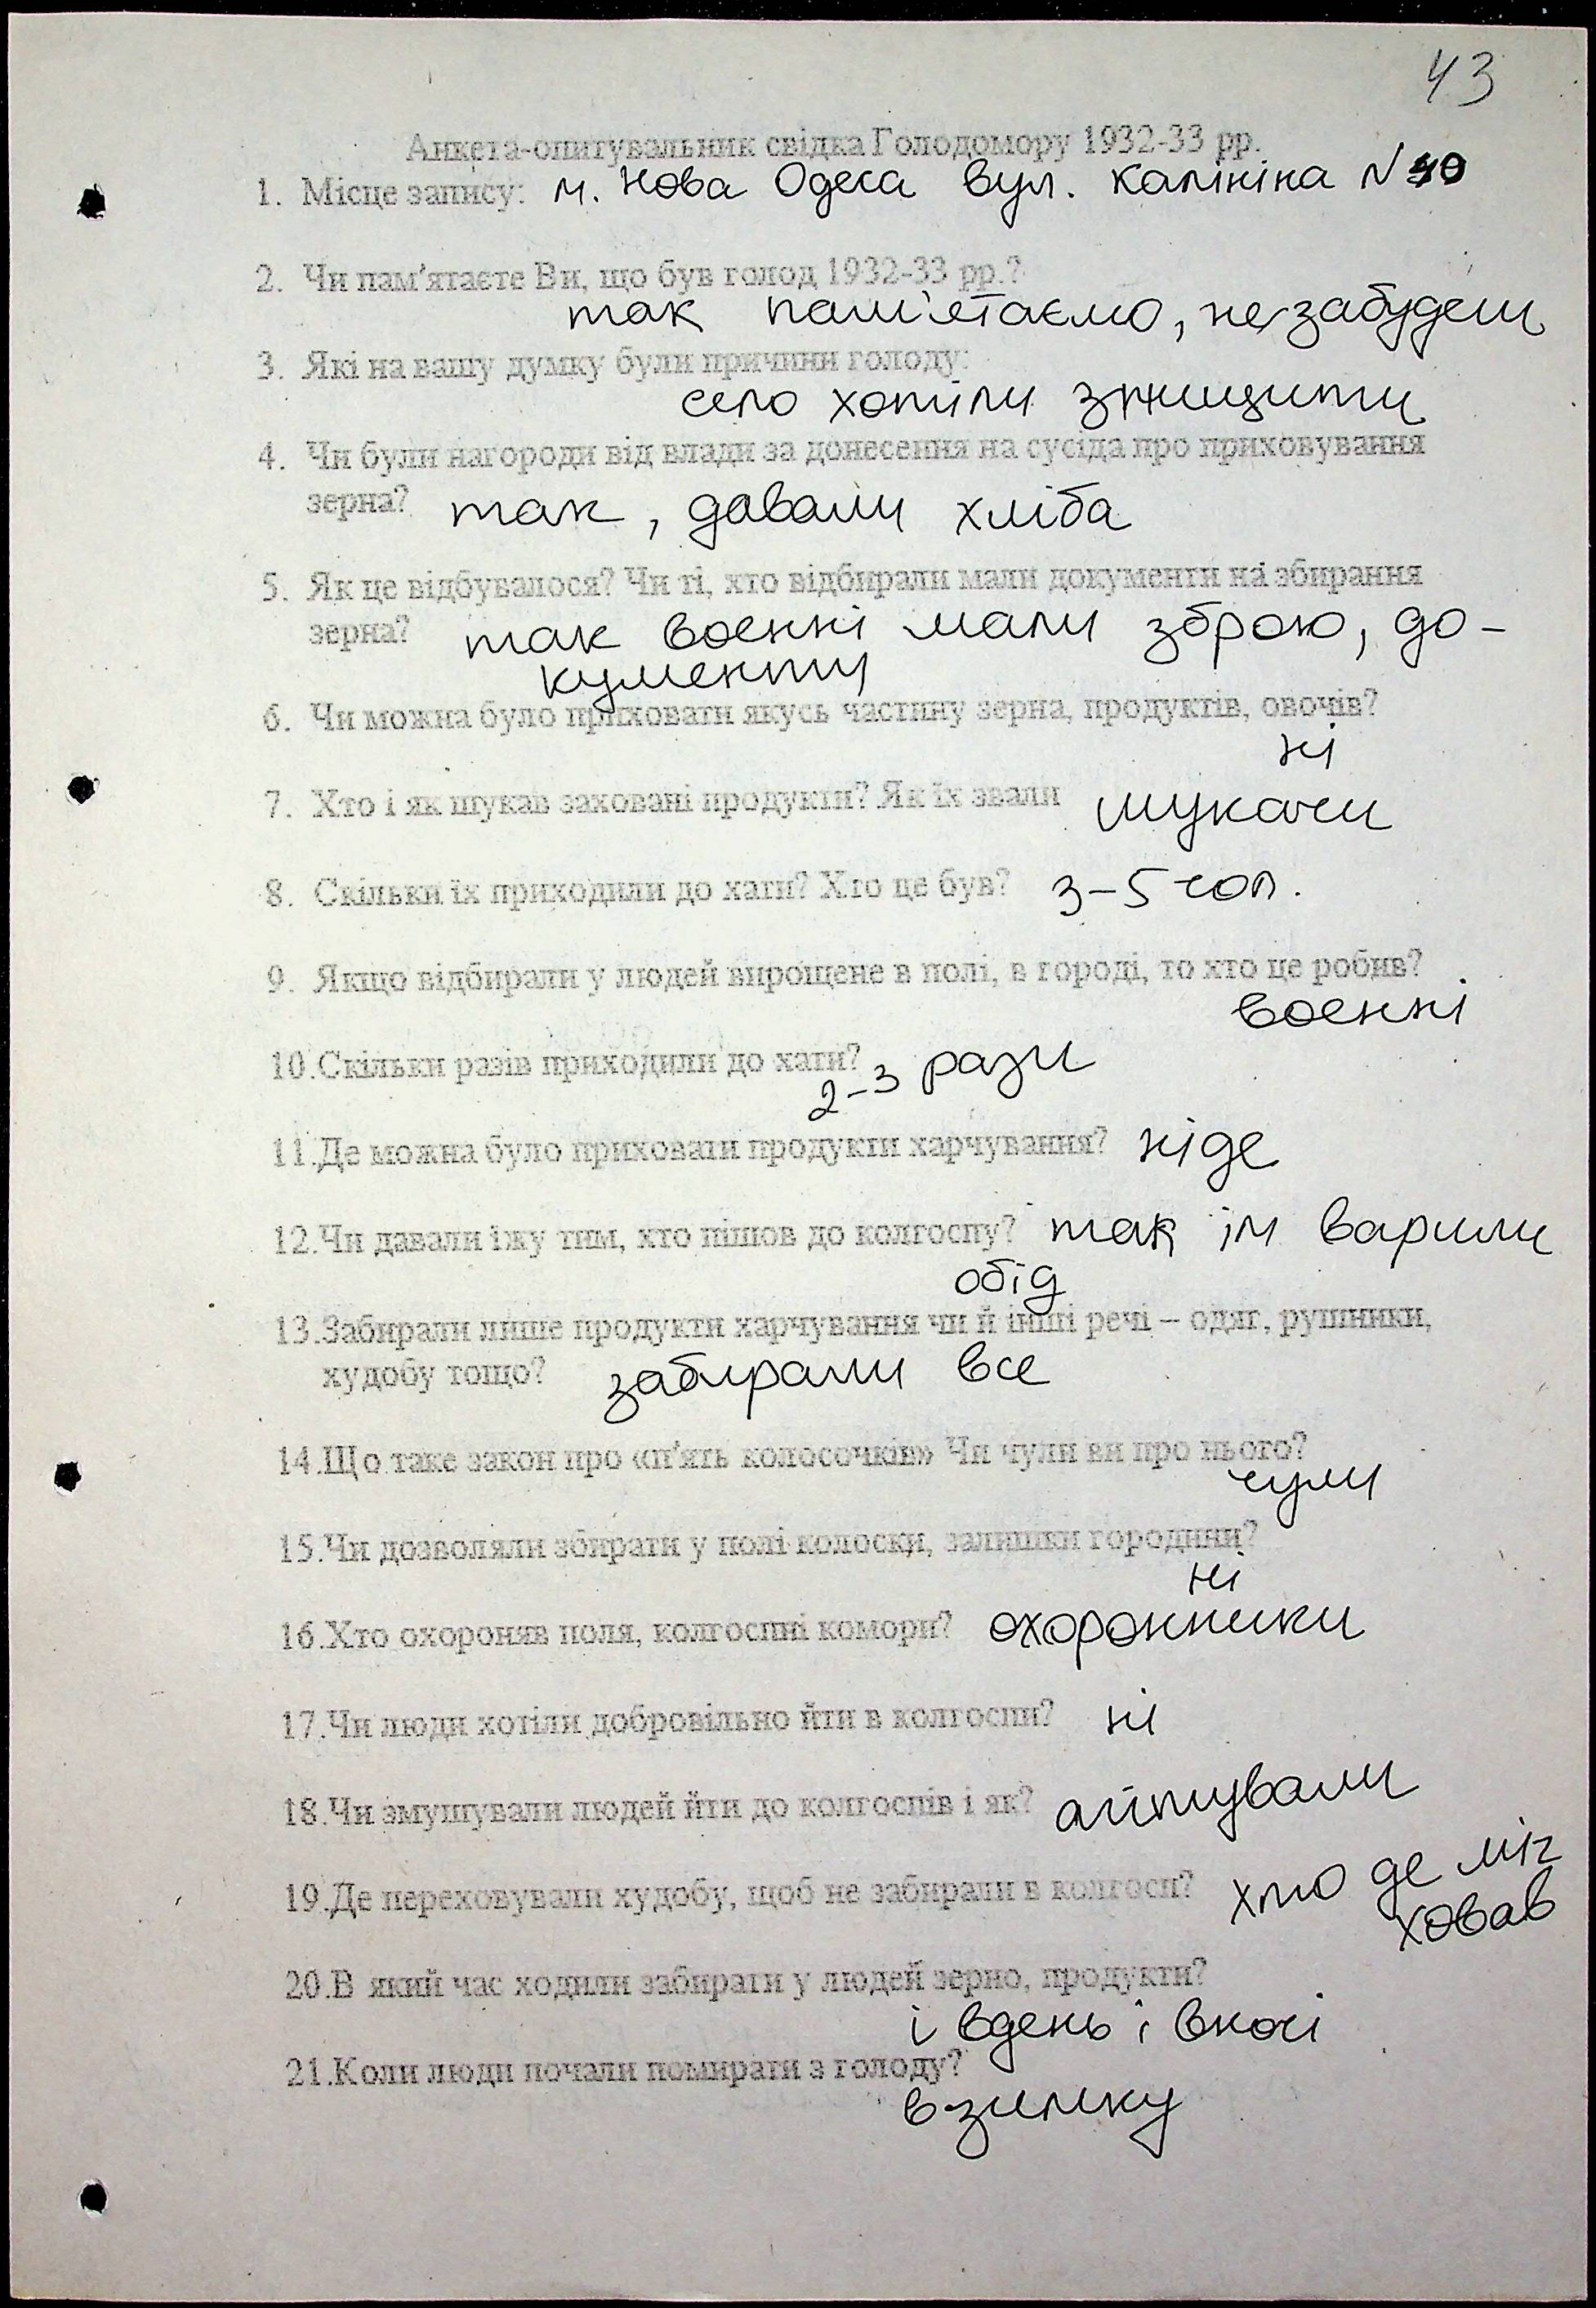 43
Анкета-опитувальник свідка Голодомору 1932-33 рр.
1. Місце запису: м. Нова Одеса вул. Калініна N 40
2. Чи пам'ятаєте Ви, що був голод 1932-33 рр.?
так пам'етаємо, не забудеш
3. Які на вашу думку були причини голоду:
село хотіли знищити
4. Чи були нагороди від влади за донесення на сусіда про приховування
зерна? так, давали хліба
5. Як це відбувалося? Чи ті, хто відбирали мали документи на збирання
зерна? так воєнні мали зброю, до-
кументи
6. Чи можна було приховати якусь частину зерна, продуктів, овочів?
ні
7. Хто і як шукав заховані продукти? Як їх звали шукачи
8. Скільки їх приходили до хати? Хто це був? 3-5 чол.
9. Якщо відбирали у людей вирощене в полі, в городі, то хто це робив?
воєнні
10.Скільки разів приходили до хати? 2-3 рази
11.Де можна було приховати продукти харчування? ніде
12.Чи давали їжу тим, хто пішов до колгоспу? так їм варили
обід
13.Забирали лише продукти харчування чи й інші речі – одяг, рушники,
худобу тощо? забирали все
14.Що таке закон про «п'ять колосочків» Чи чули ви про нього?
чули
15.Чи дозволяли збирати у полі колоски, залишки городини?
ні
16.Хто охороняв поля, колгоспні комори? охоронники
17.Чи люди хотіли добровільно йти в колгоспи? ні
18.Чи змушували людей йти до колгоспів і як? агітували
19.Де переховували худобу, щоб не забирали в колгосп? хто де міг
ховав
20.В який час ходили забирати у людей зерно, продукти?
і вдень і вночі
21.Коли люди почали помирати з голоду?
взимку